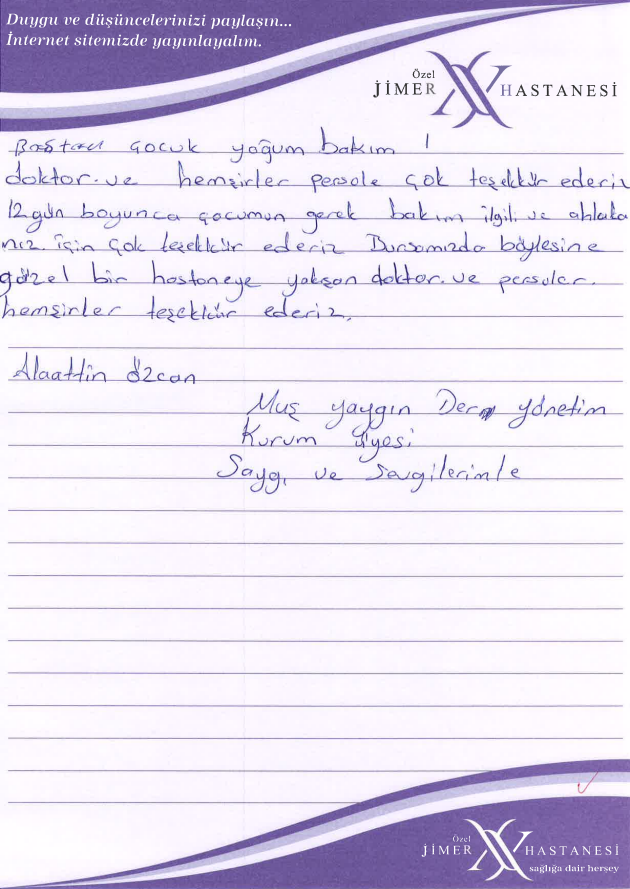 Duygu ve düşüncelerinizi paylaşın...
İnternet sitemizde yayınlayalım.
Özel
JİMER HASTANESİ
Baştan çocuk yoğum bakım !
doktor. ve hemşirler persole çok teşekkür ederiz
12 gün boyunca çocumun gerek bakım ilgili ve ahlaka
nız. için çok teşekkür ederiz Bursamızda böylesine
güzel bir hastaneye yakışan doktor. ve persoler.
hemşirler teşekkür ederiz.
Alaattin Özcan
Muş yaygın Der yönetim
Kurum üyesi
Saygı ve sevgilerimle
Özel
JİMER HASTANESİ
sağlığa dair herşey